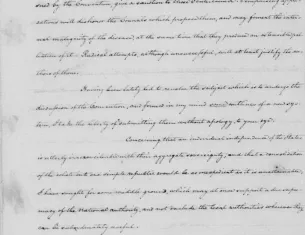 ored by the Convention, give a sanction to these Conferences. Temporising appli-
cations will dishonor the Councils which propose them, and may foment the inter-
nal malignity of the disease, at the same time that they produce an ostensible pal-
liation of it. Radical attempts, although unsuccessful, will at least justify the au-
thors of them.
Having been lately led to revolve the subject which is to undergo the
discussion of the Convention, and formed in my mind some outlines of a new sys-
tem, I take the liberty of submitting them without apology, to your eye.
Conceiving that an individual independence of the States
is utterly irreconcileable with their aggregate sovereignty; and that a consolidation
of the whole into one simple republic would be as inexpedient as it is unattainable,
I have sought for some middle ground, which may at once support a due supre-
macy of the national authority, and not exclude the local authorities wherever they
can be subordinately useful.